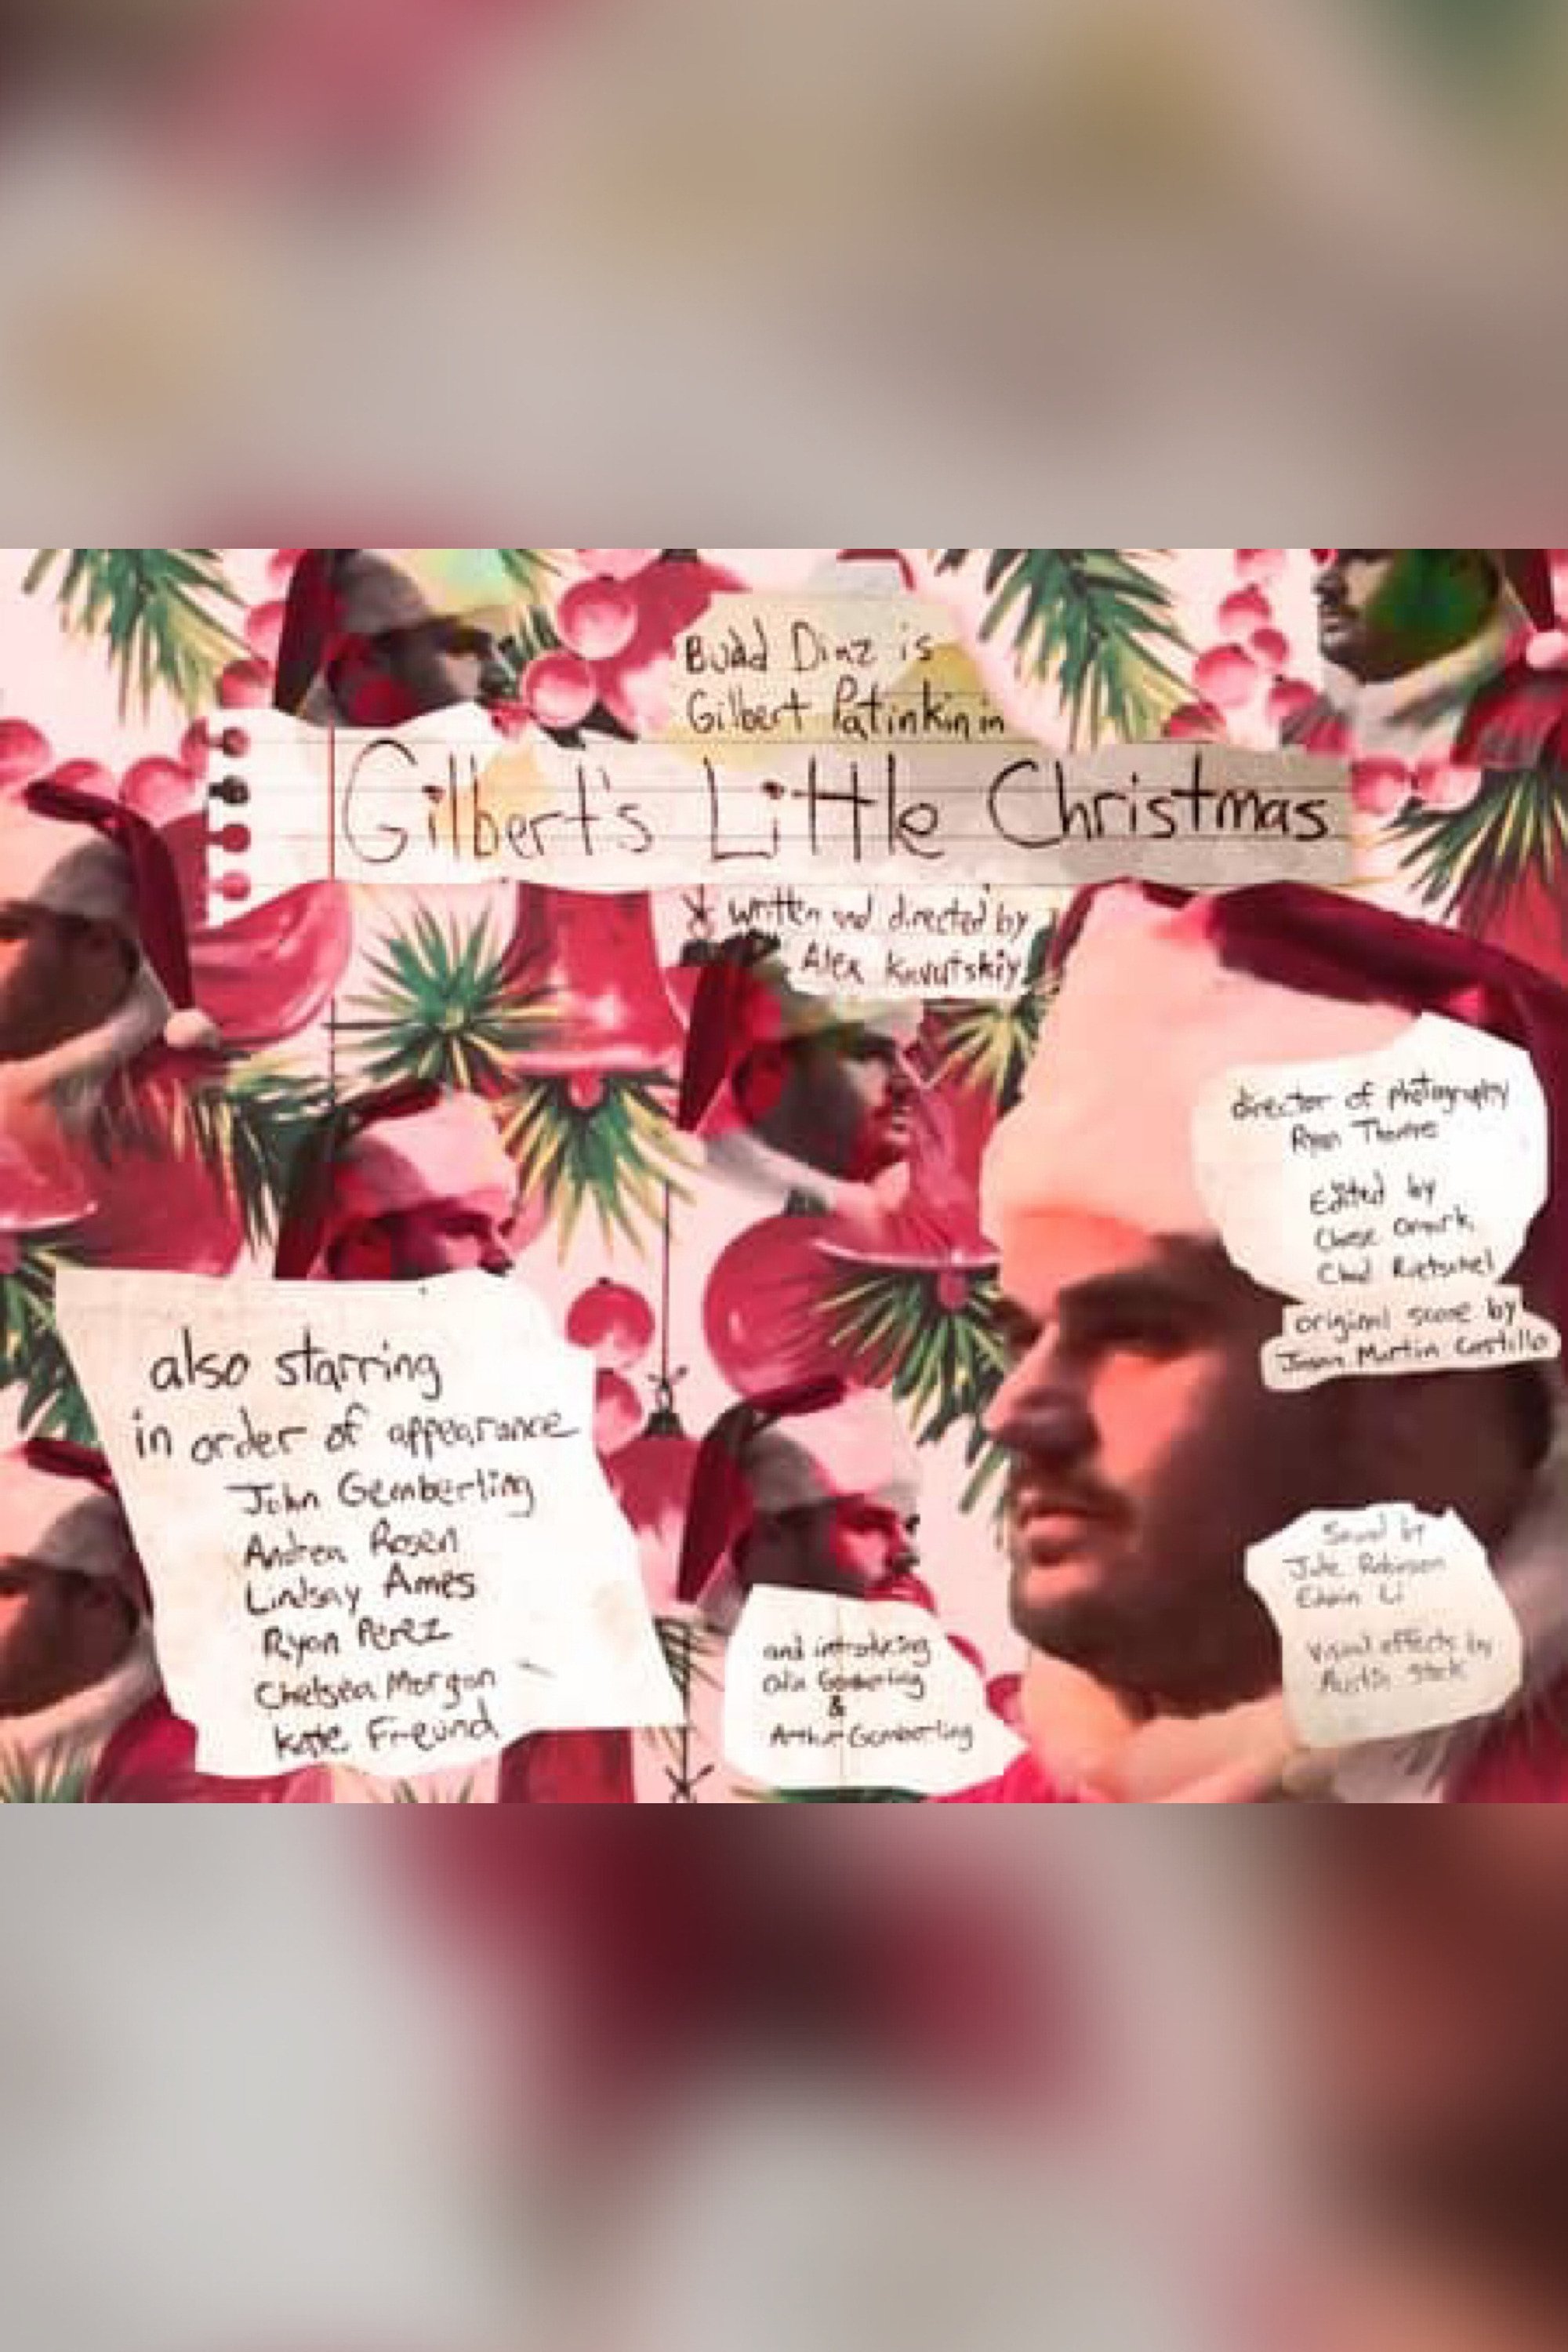 Budd Diaz is
Gilbert Patinkin in
Gilbert's Little Christmas
* written and directed by
Alex Kavutskiy
director of photography
Ryan Thomas
Edited by
Chase Ornirk,
Chad Rietschel
original score by
Jason Martin Castillo
also starring
in order of appearance
John Gemberling
Andrea Rosen
Lindsay Ames
Ryan Perez
Chelsea Morgan
Kate Freund
and introducing
Gemberling
&
Arthur Gemberling
Sound by
Jake Robinson
Edwin Li
visual effects by
Austin